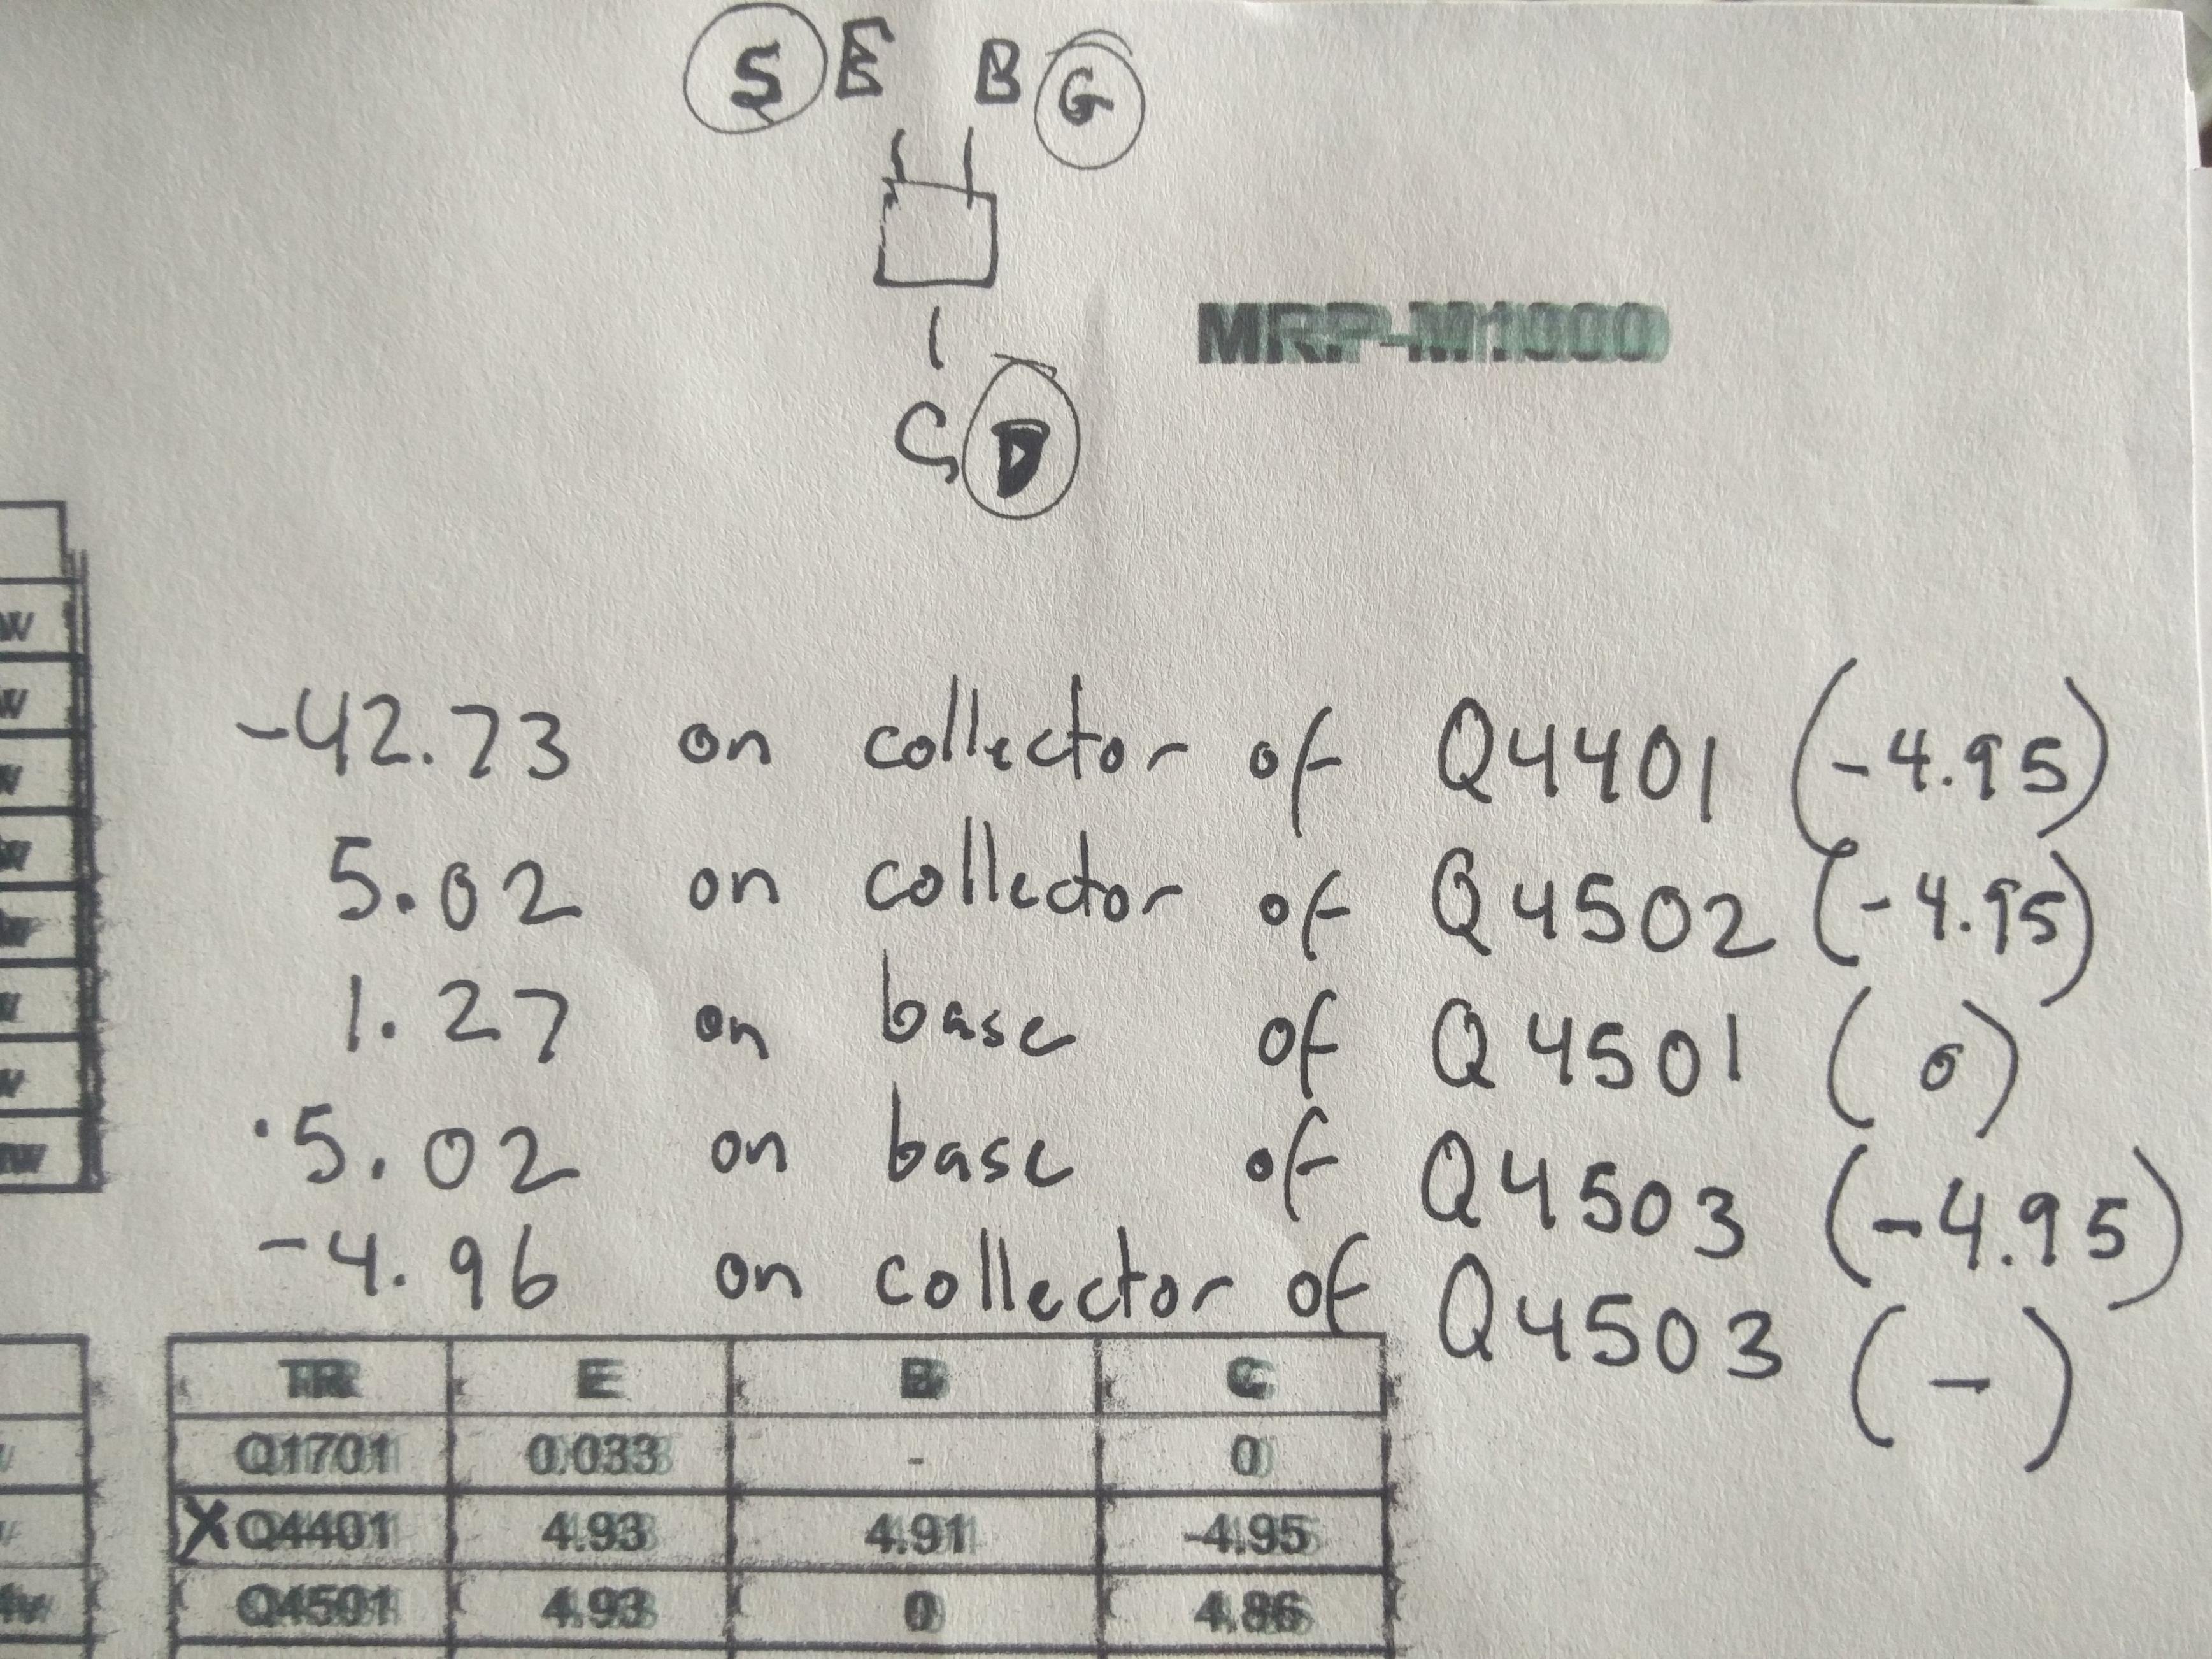 S E B G
MRP-M1000
C D
-42.73 on collector of Q4401 (-4.95)
5.02 on collector of Q4502 (-4.95)
1.27 on base of Q4501 (0)
5.02 on base of Q4503 (-4.95)
-4.96 on collector of Q4503 (-)
TR E B C
Q1701 0.033 - 0
X Q4401 4.93 4.91 -4.95
Q4501 4.93 0 4.86